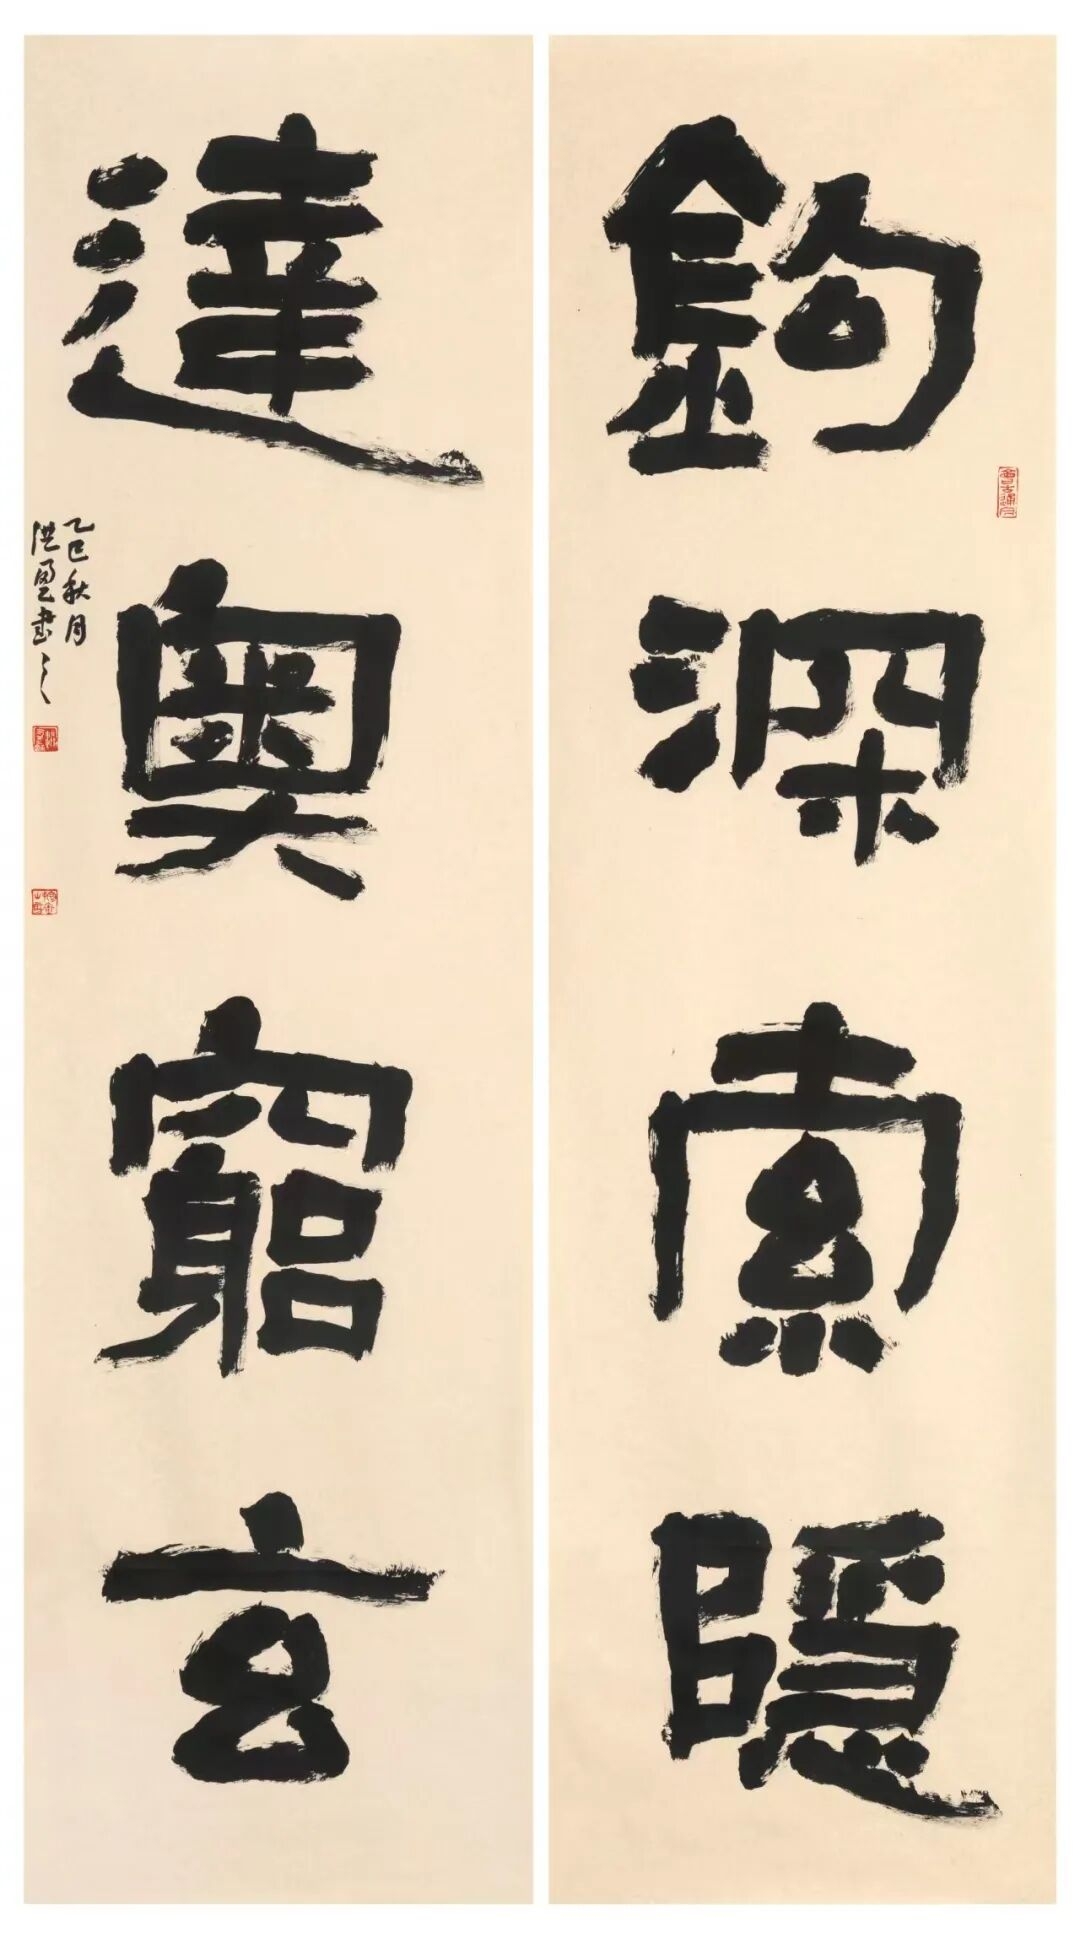 鈎深索隱
達奧窮玄
乙巳秋月
洪星書之